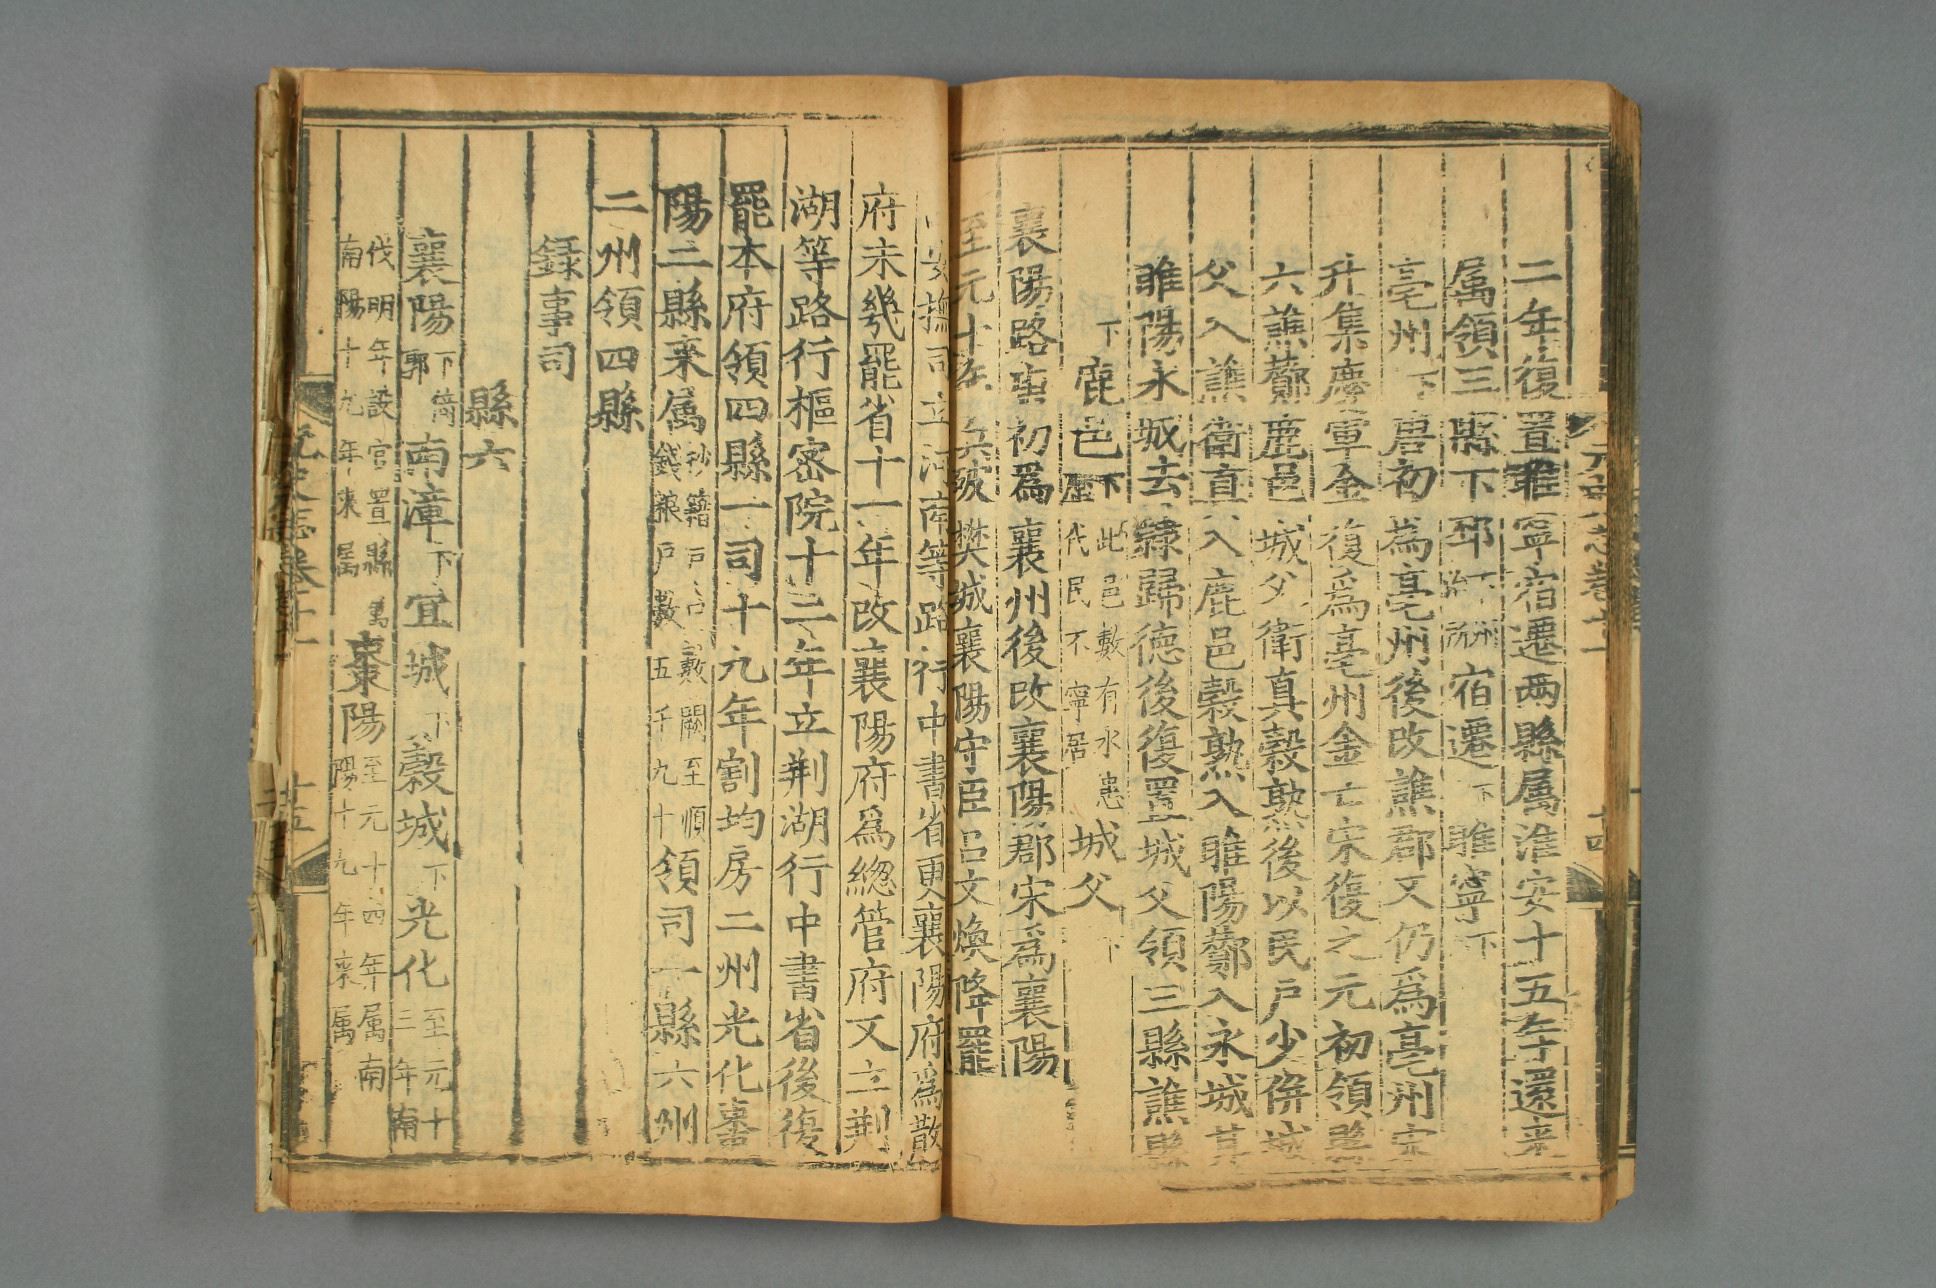 元史志卷十一
十四
二年復置睢寧宿遷两縣属淮安十五年還来
属領三縣下邳下宿遷下睢寧下
亳州下唐初為亳州後改譙郡又仍爲亳州宋
升集慶軍金復爲亳州金亡宋復之元初領縣
六譙酇鹿邑城父衛真穀熟後以民戶少併城
父入譙衛真入鹿邑穀熟入睢陽酇入永城其
睢陽永城去隸歸德後復置城父領三縣譙縣
下鹿邑下此邑數有水患歷代民不寧居城父下
襄陽路唐初爲襄州後改襄陽郡宋爲襄陽
至元十年兵破樊城襄陽守臣呂文煥降罷
安撫司立河南等路行中書省更襄陽府爲散
府未幾罷省十一年改襄陽府爲總管府又立荆
湖等路行樞密院十二年立荆湖行中書省後復
罷本府領四縣一司十九年割均房二州光化棗
陽二縣来属抄籍戶口數闕至順錢粮戶數五千九十領司一縣六州
二州領四縣
録事司
縣六
襄陽下倚郭南漳下宜城下穀城下光化至元十三年南
伐明年設官置縣属南陽十九年来属棗陽至元十四年属南陽十九年来属
元史志卷十一
十五